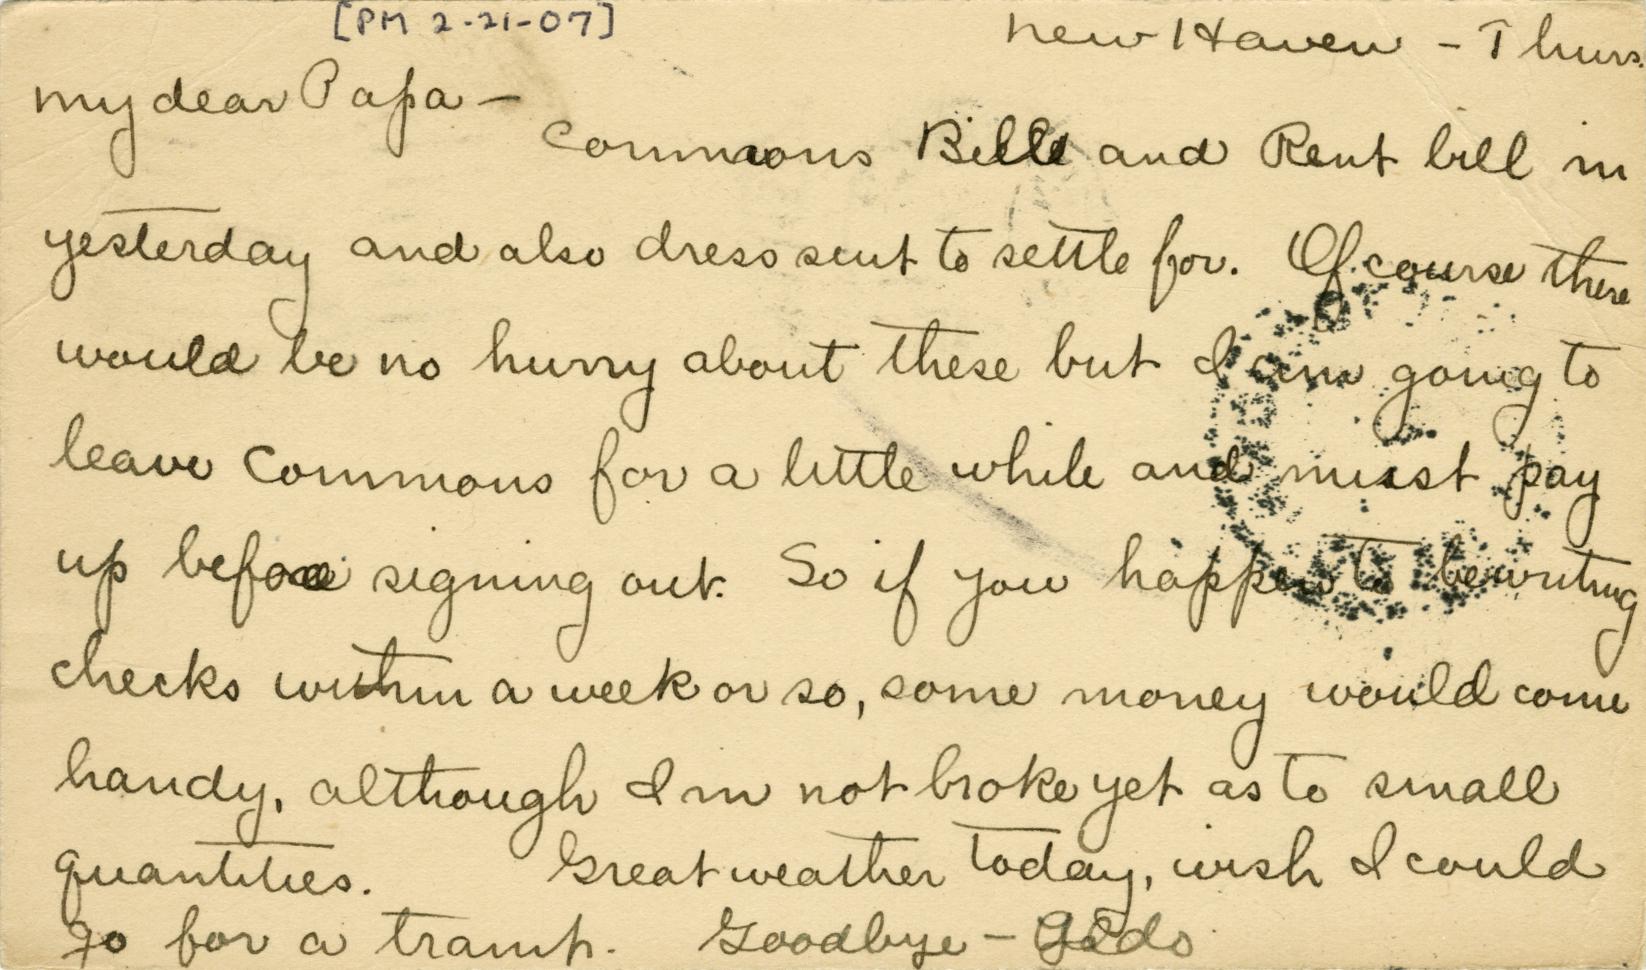 [PM 2-21-07]
New Haven - Thurs.
My dear Papa -
Commons Bill and Rent bill in
yesterday and also dress suit to settle for. Of course there
would be no hurry about these but I am going to
leave Commons for a little while and must pay
up before signing out. So if you happen to be writing
checks within a week or so, some money would come
handy, although I'm not broke yet as to small
quantities. Great weather today, wish I could
go for a tramp. Goodbye -